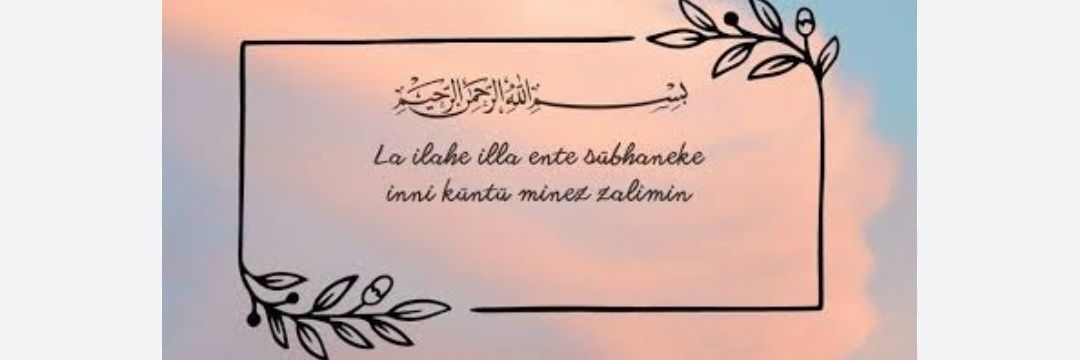 بِسْمِ اللهِ الرَّحْمٰنِ الرَّحِيْمِ
La ilahe illa ente sübhaneke
inni küntü minez zalimin